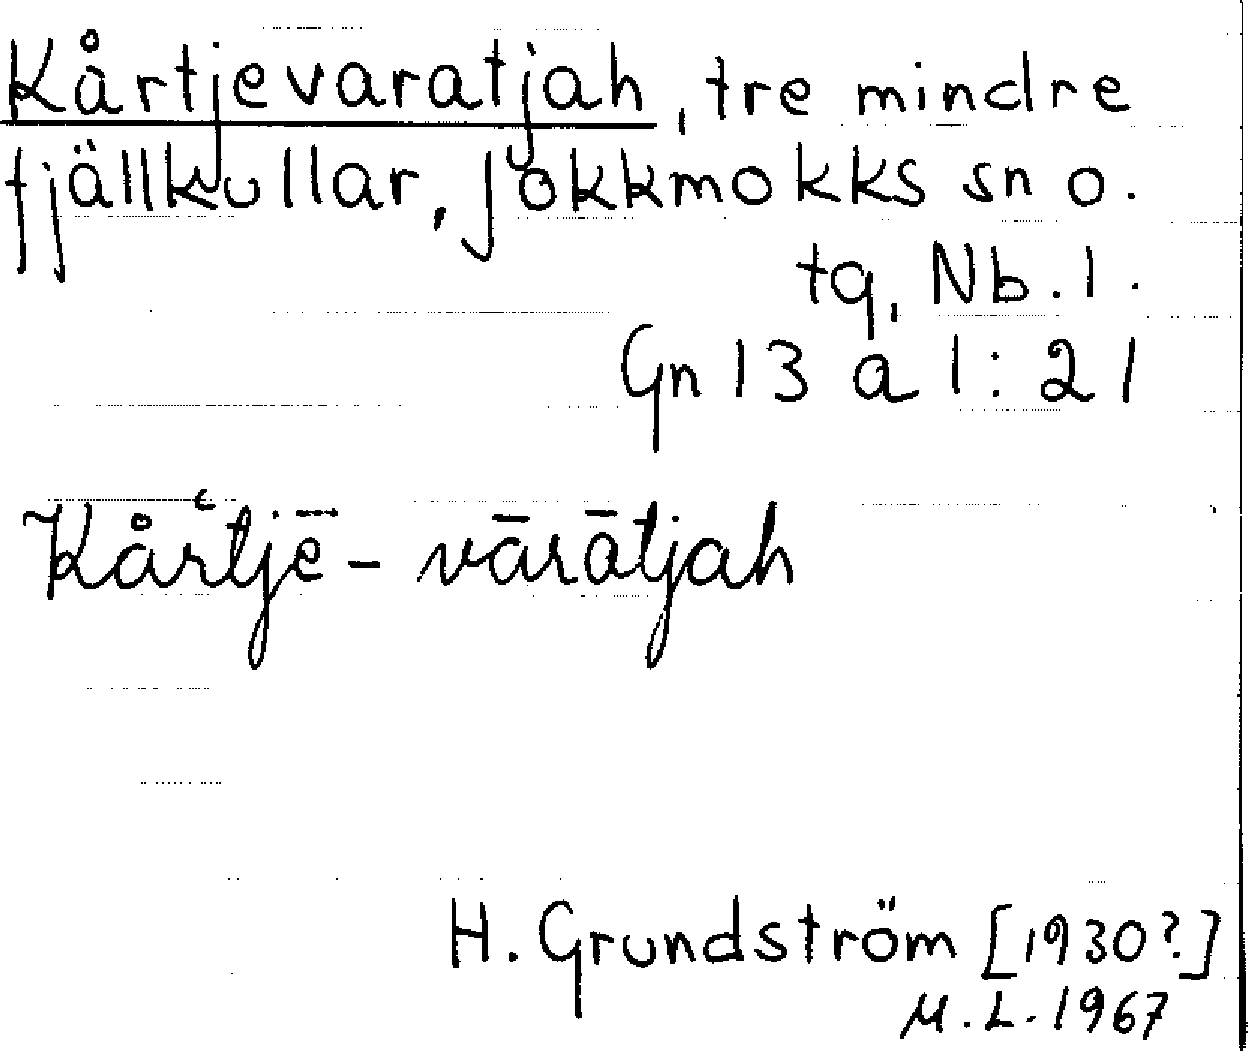 Kårtjevaratjah, tre mindre
fjällkullar, Jokkmokks sn o.
tg, Nb.l.
Gn 13 a 1:21
Kår‘tjē - vārātjah
H. Grundström [1930?]
M.L. 1967